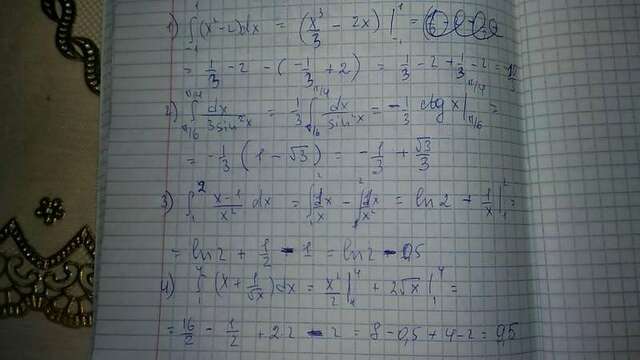 1) ∫₋₁¹ (x² - 2)dx = (x³/3 - 2x) |₋₁¹ =
= 1/3 - 2 - (-1/3 + 2) = 1/3 - 2 + 1/3 - 2 =
2) ∫_{π/6}^{π/4} dx/(3sin²x) = 1/3 ∫_{π/6}^{π/4} dx/sin²x = -1/3 ctg x |_{π/6}^{π/4} =
= -1/3 (1 - √3) = -1/3 + √3/3
3) ∫₁² (x-1)/x² dx = ∫₁² dx/x - ∫₁² dx/x² = ln2 + 1/x |₁² =
= ln2 + 1/2 - 1 = ln2 - 0,5
4) ∫₁⁴ (x + 1/√x)dx = x²/2 |₁⁴ + 2√x |₁⁴ =
= 16/2 - 1/2 + 2·2 - 2 = 8 - 0,5 + 4 - 2 = 9,5